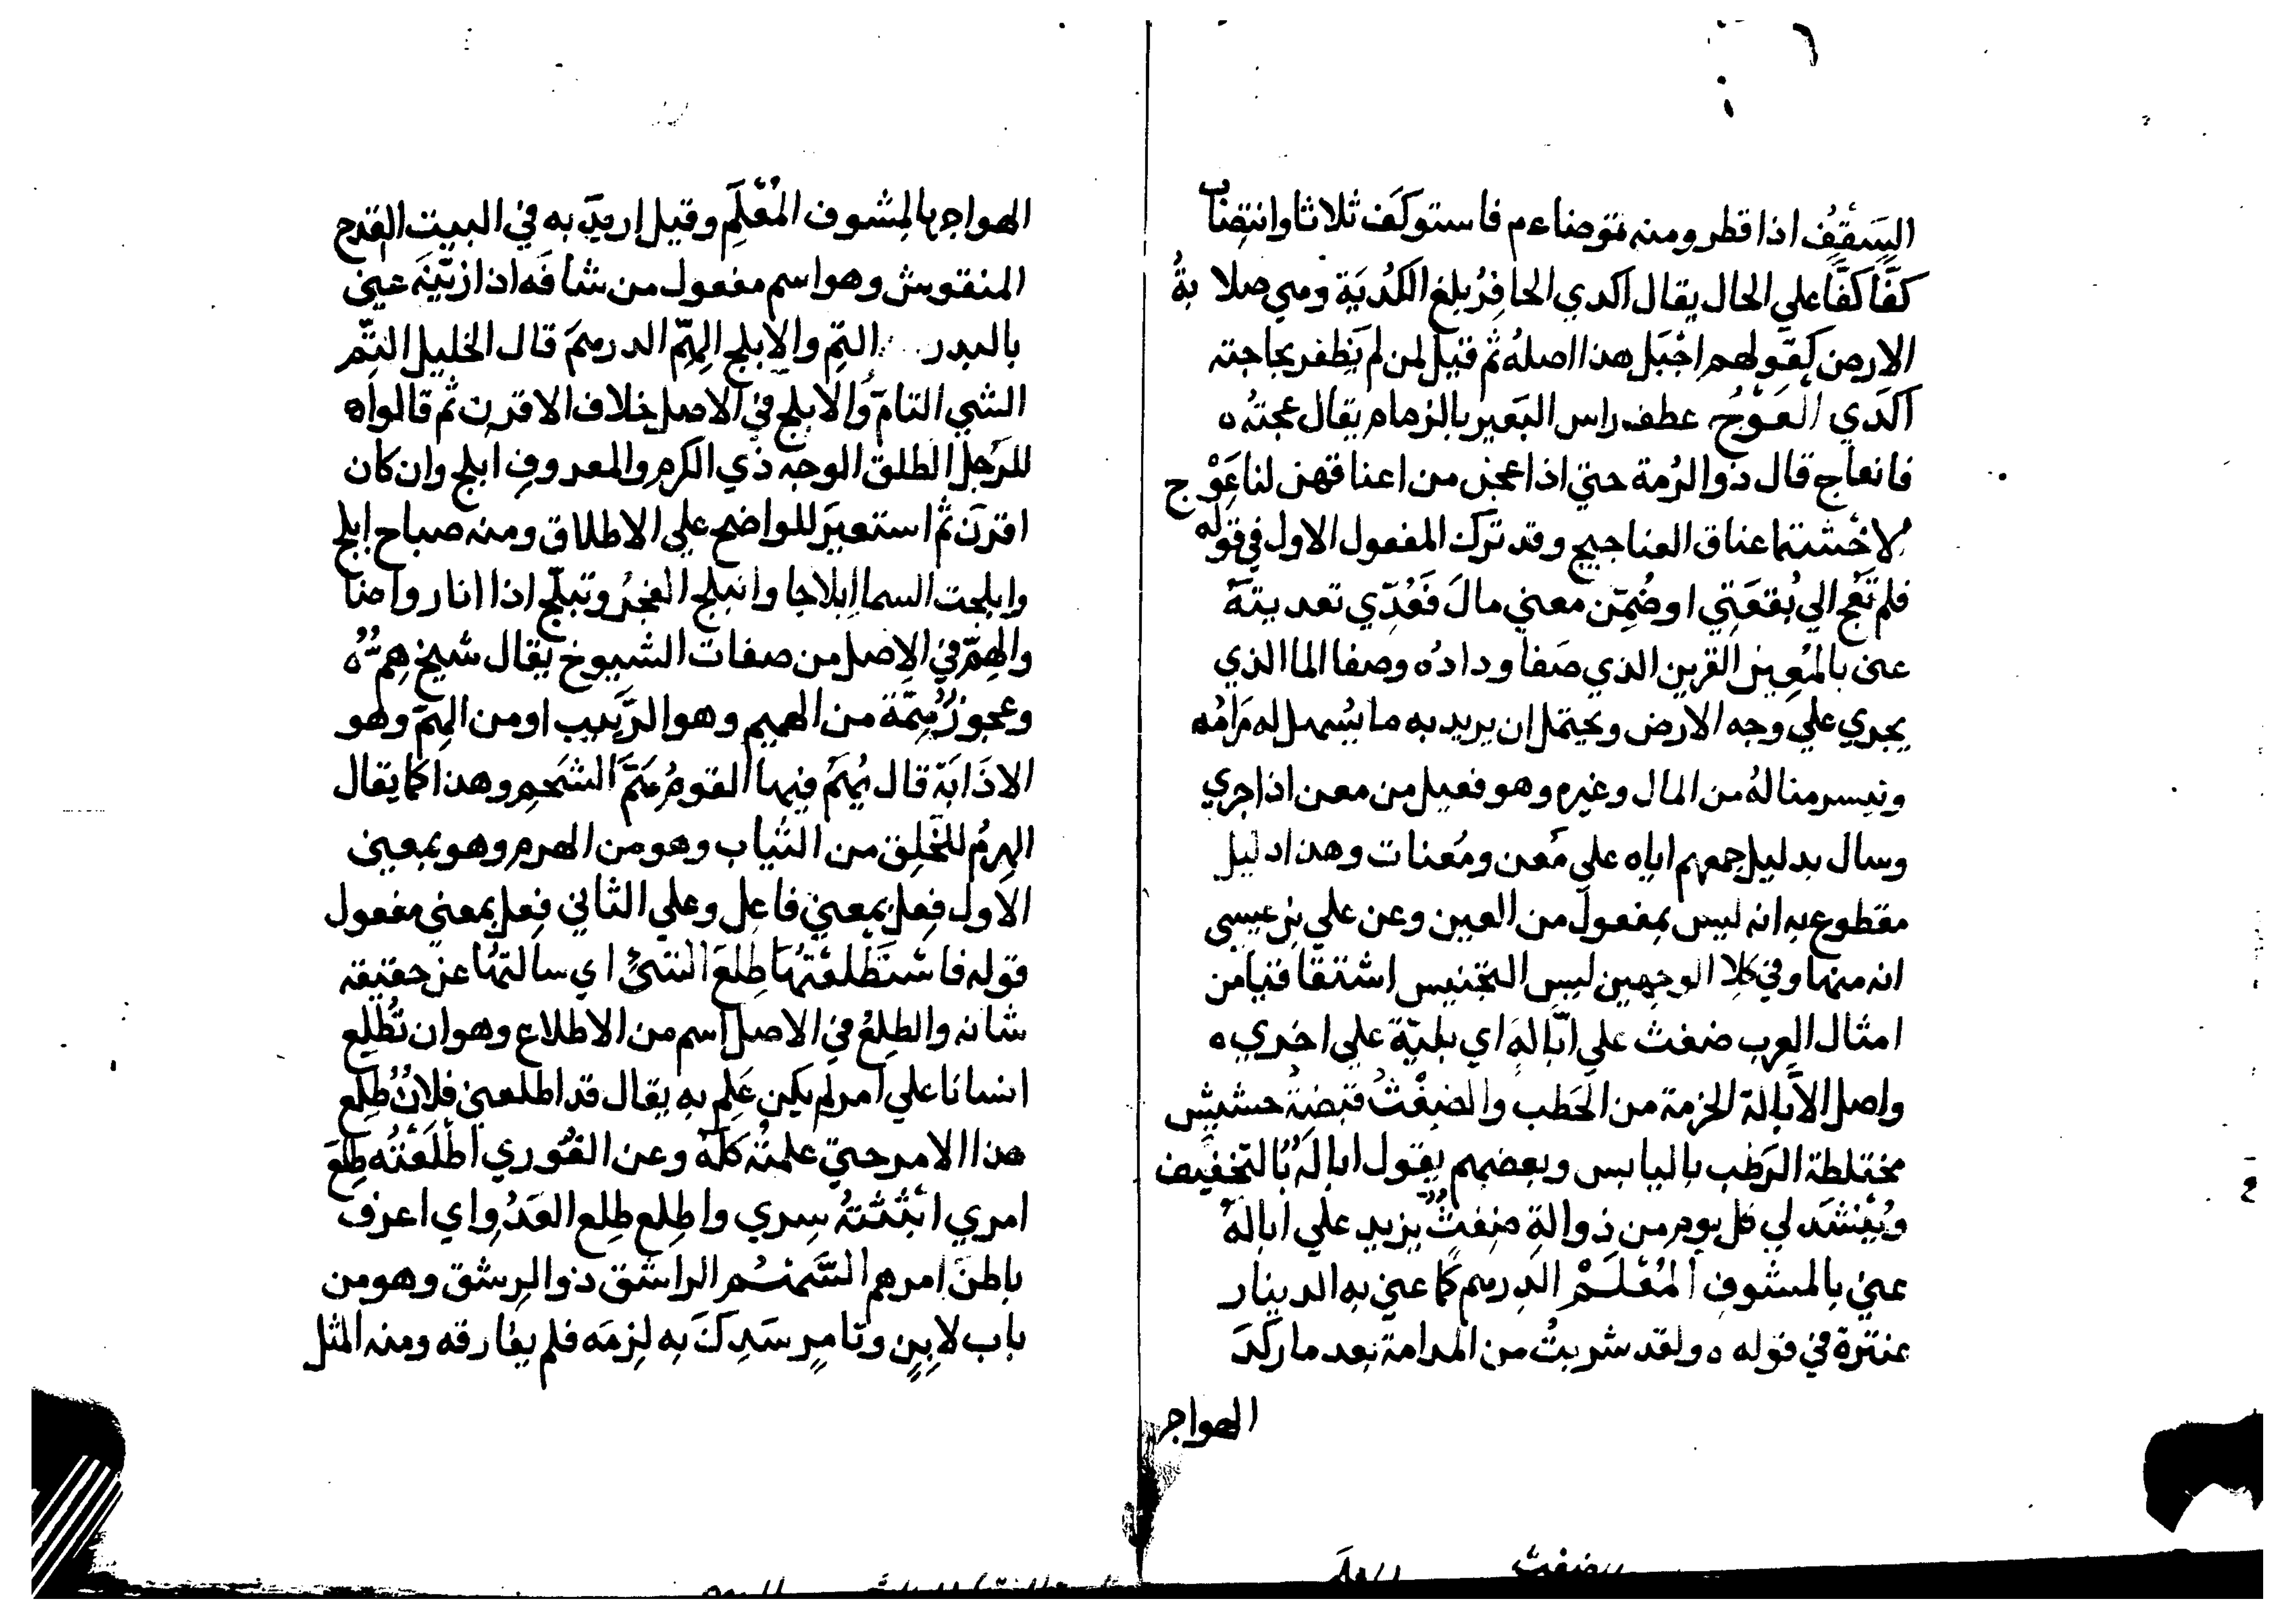 السَقفُ اذا قطر ومنه توضاءم فاستوكَف ثلاثا وانتصابُ
كفًّا كفًّا علي الحال يقال اكدي الحافِرُ بلغ الكُديَة وهي صلابةُ
الارض كقولهم اجْبَل هذا اصلهُ ثم قيل لمن لم يَظفر بحاجته
اَكدَي العَوْجُ عطف راس البَعير بالزمام يقال عجتهُ ه
فانعاج قال ذوالرُمة حتي اذا عجن من اعناقهن لنا عَوْج
الاخشة اعناق العناجيج وقد ترك المفعول الاول في قوله
فلم تَعُج الي بُقعَتِي اوضُمِّن معني مالَ فعُدّي تعديتَهُ
عني بالمُعِين القرين الذي صَفا ودادُه وصفا الما الذي
يجري علي وجه الارض ويحتمل ان يريد به ما يسُهل له مَرامُه
وتيسر منالهُ من المال وغيره وهو فعيل من معن اذا جري
وسال بدليل جمعهم اياه علي مُعن ومُعنات وهذا دليل
مقطوع به انه ليس بمفعول من العين وعن علي بن عيسي
انه منها وفي كلا الوجهين ليس التجنيس اشتقاقيا من
امثال العرب ضغث علي ابّالة اي بليّة علي اخري ه
واصل الاَبّالة الحزمة من الحَطب والضِغْثُ قبضة حشيش
مختلطة الرَطب باليابس وبعضهم يقول ابالَة بالتخفيف
ويُنشَد لي كل يوم من ذوالة ضِغثٌ يزيد علي ابالَة
عني بالمشوف المُعْلَمْ الدرهم كما عني به الدينار
عنترة في قوله ه ولقد شربتُ من المدامة بعد ما ركَدَ
الهواجر
الهواجر بالمشوف المُعْلَمِ وقيل اريدَ به في البيت القدح
المنقوش وهو اسم مفعول من شافَه اذا زيّنَه عني
بالبدر التمِ والابلج الهِمّ الدرهمَ قال الخليل التِمّ
الشي التامّ والابلج في الاصل خلاف الاقرن ثم قالوا ه
للرَجل الطلق الوجه ذي الكرم والمعروفِ ابلج وان كان
اقرَن ثم استعيرَ للواضح علي الاطلاق ومنه صباح ابلج
وابلجت السما ابلاجا وانبلج الفجرُ وتبلّج اذا انار واضا
والهِمّ في الاصل من صفات الشيوخ يقال شيخ هِمٌ ه
وعجوز هِمّة من الهميم وهو الدَبيب اومن الهمّ وهو
الاذَابَة قال يُهَمّ فيها القومُ هَمَّ الشَحم وهذا كما يقال
الهِرمُ للخَلِق من الثياب وهو من الهرم وهو بمعني
الاول فِعل بمعني فاعِل وعلي الثاني فِعل بمعني مفعول
قوله فاستَطْلَعْتُهَا طِلعَ الشئُ اي سالتهُا عن حقيقة
شانه والطلعُ في الاصل اسم من الاطلاع وهو ان تُطلِع
انسانا علي امر لم يكن عَلِم به يقال قد اطلعني فلانٌ طِلع
هذا الامر حتي علمتُه كلّهُ وعن الغُوري اطْلَعْتُه طِلعَ
امري ابْثَثْتُهُ سِري واطِلع طِلع العَدُو اي اعرف
باطنَ امرهم السَّهمُ الراشق ذوالرِشق وهو من
باب لابِنٍ وتامِرٍ سَدِكَ بِه لزمَه فلم يفارقه ومنه المثل